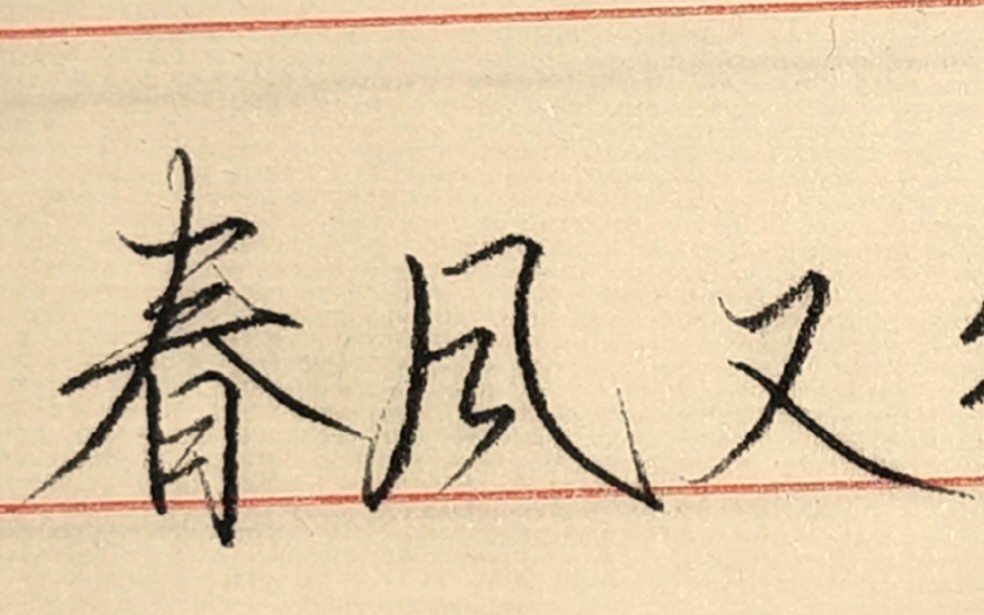 春风又